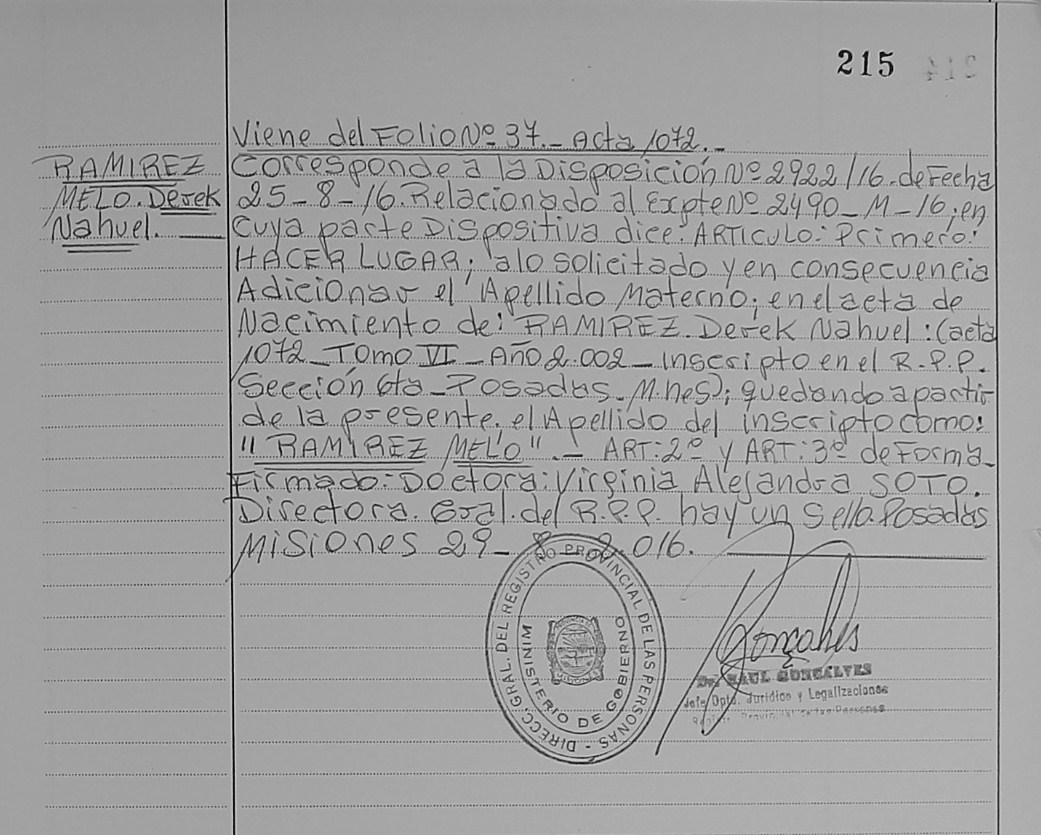 215
Viene del Folio Nº 37.- Acta 1072.-
RAMIREZ
MELO. Derek
Nahuel.
Corresponde a la Disposición Nº 2922/16. de Fecha
25-8-16. Relacionado al Expte Nº 2490-M-16; en
Cuya parte Dispositiva dice: ARTICULO: Primero:
HACER LUGAR; a lo solicitado y en consecuencia
Adicionar el Apellido Materno; en el acta de
Nacimiento de: RAMIREZ. Derek Nahuel: (acta
1072 - Tomo VI - Año 2.002 - inscripto en el R.P.P.
Sección 6ta - Posadas. Mnes); quedando a partir
de la presente. el Apellido del inscripto como:
"RAMIREZ MELO".- ART: 2º y ART: 3º de Forma-
Firmado: Doctora: Virginia Alejandra SOTO.
Directora. Gral. del R.P.P. hay un Sello. Posadas
Misiones 29- 2.016.
DIRECC. GRAL. DEL REGISTRO PROVINCIAL DE LAS PERSONAS -
MINISTERIO DE GOBIERNO
Gonçalves
Dr. RAUL GONCALVES
Jefe Dpto. Jurídico y Legalizaciones
Provincial de las Personas